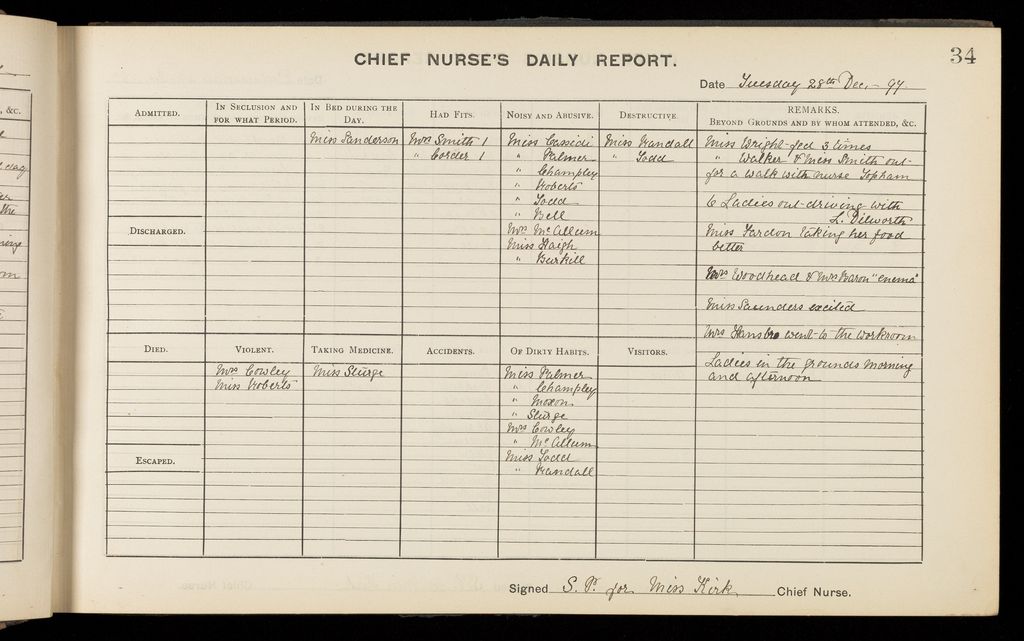 CHIEF NURSE'S DAILY REPORT.
34
Date Tuesday 28th Dec. - 97
ADMITTED.
IN SECLUSION AND FOR WHAT PERIOD.
IN BED DURING THE DAY.
Miss Sanderson
HAD FITS.
Mrs Smith 1
" Corder 1
NOISY AND ABUSIVE.
Miss Cassidi
" Palmer
" Champley
" Roberts
" Todd
" Bell
Mrs McCallum
Miss Haigh
" Burkill
DESTRUCTIVE.
Miss Randall
" Todd
REMARKS.
BEYOND GROUNDS AND BY WHOM ATTENDED, &C.
Miss Wright fed 3 times
" Walker & Miss Smith out
for a walk with nurse Topham
6 Ladies out driving with
L. Dilworth
Miss Fardon taking her food
better
Mrs Woodhead & Mrs Baron "enema"
Miss Saunders excited
Mrs Hansbro went to the workroom
Ladies in the grounds morning
and afternoon
DISCHARGED.
DIED.
VIOLENT.
Mrs Cowley
Miss Roberts
TAKING MEDICINE.
Miss Sturge
ACCIDENTS.
OF DIRTY HABITS.
Miss Palmer
" Champley
" Moxon
" Sturge
Mrs Cowley
" McCallum
Miss Todd
" Randall
VISITORS.
ESCAPED.
Signed S. P. for Miss Kirk Chief Nurse.